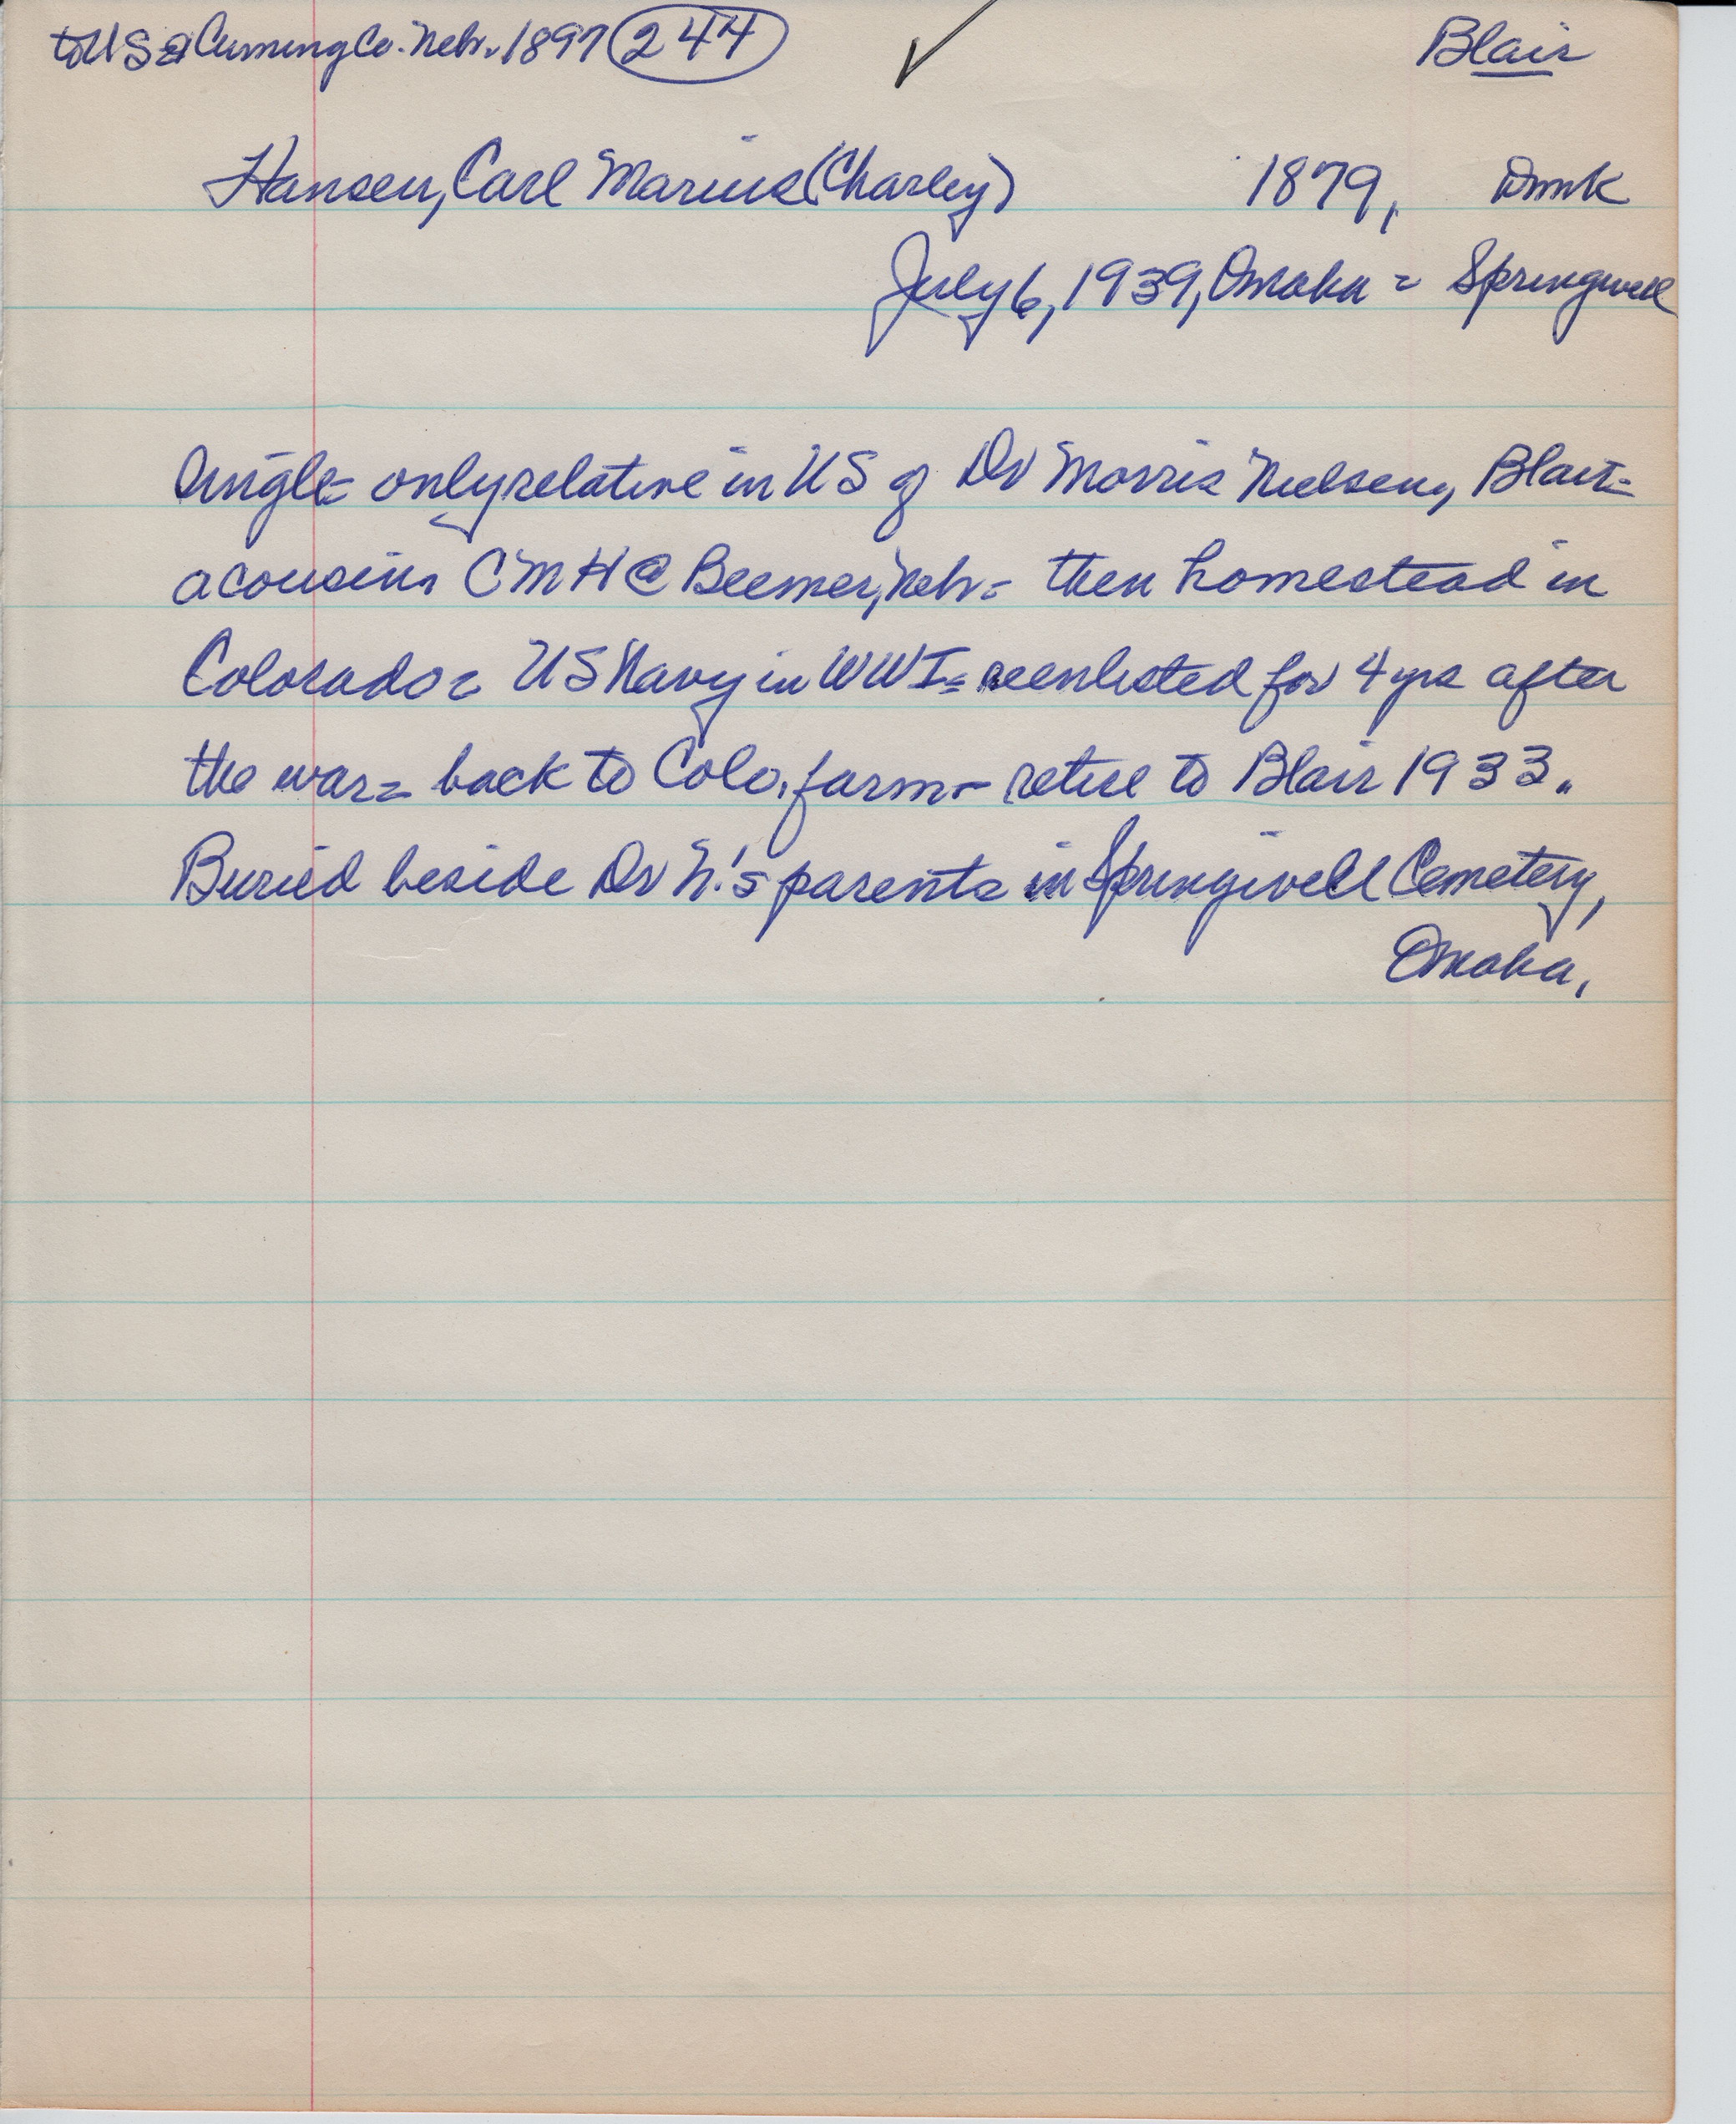 to US @ Cuming Co. Nebr. 1897 244 ✓ Blair
Hansen, Carl Marius (Charley) 1879, Dnmk
July 6, 1939, Omaha = Springwell
Single - only relative in US of Dr Morris Nielsen, Blair -
a cousin. CMH @ Beemer, Nebr - then homestead in
Colorado = US Navy in WWI = reenlisted for 4 yrs after
the war = back to Colo. farm - retire to Blair 1933.
Buried beside Dr N.'s parents in Springwell Cemetery,
Omaha.